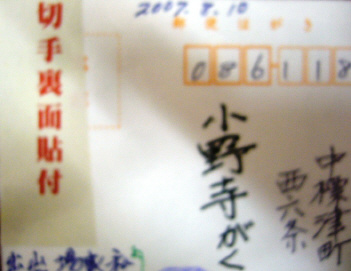 2007.8.10
郵便はがき
086-118
中標津町
西六条
小野寺がく
切手裏面貼付